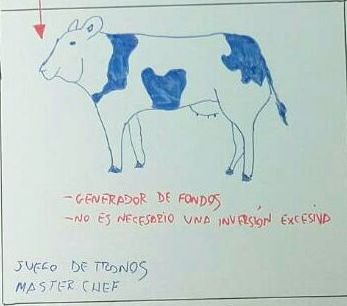 - GENERADOR DE FONDOS
- NO ES NECESARIO UNA INVERSIÓN EXCESIVA
JUEGO DE TRONOS
MASTER CHEF